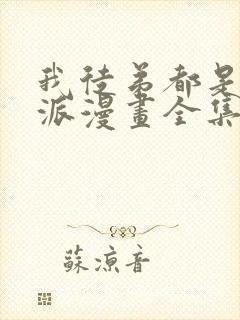 我徒弟都是
派漫畫全集
蘇涼音